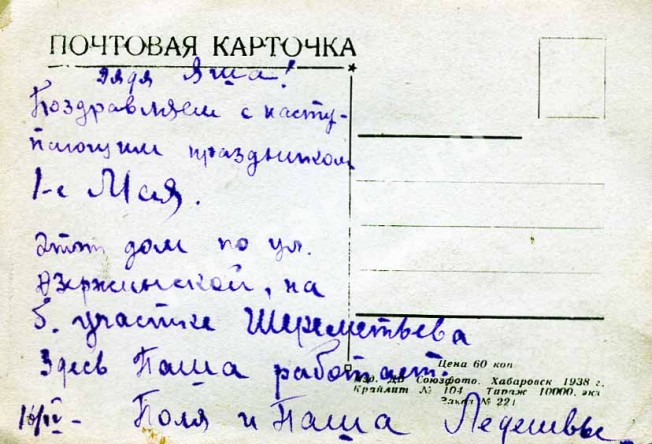 ПОЧТОВАЯ КАРТОЧКА
дядя Яша!
Поздравляем с насту-
пающим праздником
1-е Мая.
Этот дом по ул.
Дзержинской, на
б. участке Шереметьева
Здесь Паша работает.
Поля и Паша
Цена 60 коп.
Изд. ДВ Союзфото. Хабаровск 1938 г.
Крайлит № 104 Тираж 10000, экз
Заказ № 221